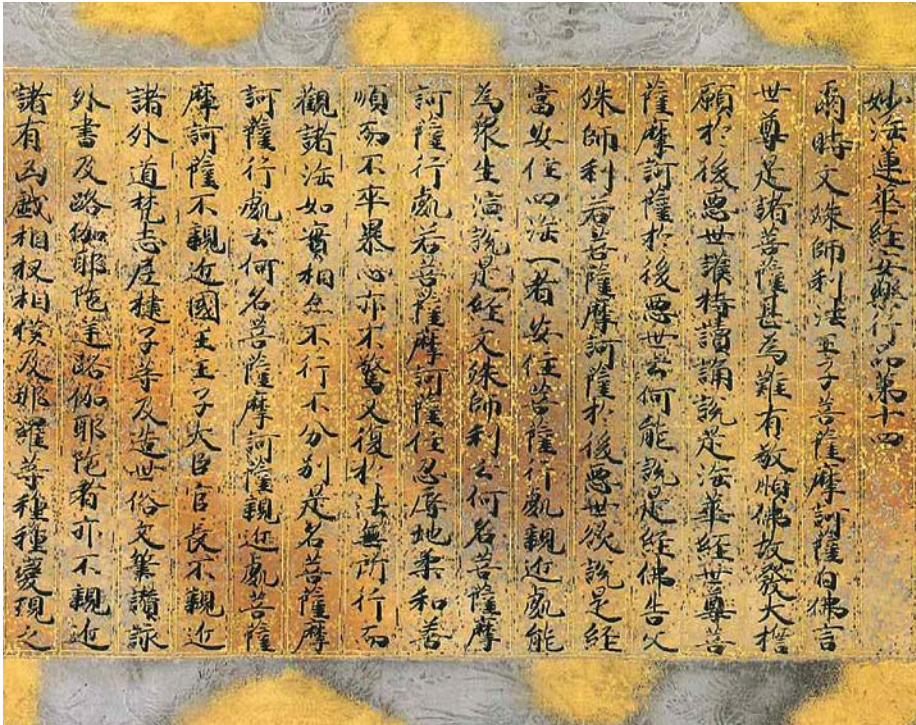 妙法蓮華經安樂行品第十四
爾時文殊師利法王子菩薩摩訶薩白佛言
世尊是諸菩薩甚為難有敬順佛故發大擔
願於後惡世護持讀誦說是法華經世尊菩
薩摩訶薩於後惡世云何能說是經佛告文
殊師利若菩薩摩訶薩於後惡世欲說是經
當安住四法一者安住菩薩行處親近處能
為眾生演說是經文殊師利云何名菩薩摩
訶薩行處若菩薩摩訶薩住忍辱地柔和善
順而不卒暴心亦不驚又復於法無所行而
觀諸法如實相亦不行不分別是名菩薩摩
訶薩行處云何名菩薩摩訶薩親近處菩薩
摩訶薩不親近國王王子大臣官長不親近
諸外道梵志尼揵子等及造世俗文筆讚詠
外書及路伽耶陀逆路伽耶陀者亦不親近
諸有凶戲相扠相撲及那羅等種種變現之